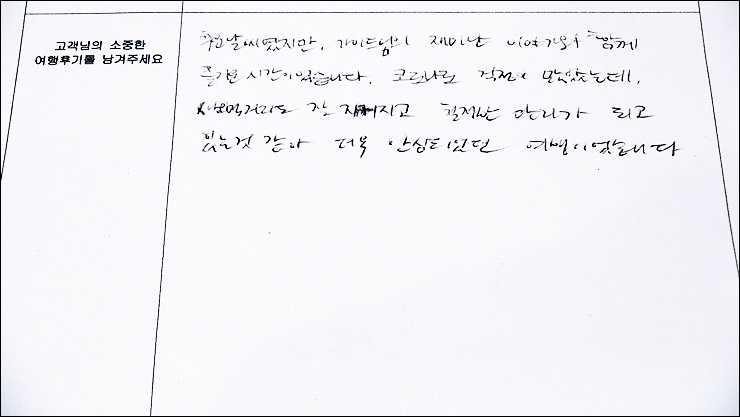 고객님의 소중한
여행후기를 남겨주세요
추운 날씨였지만, 가이드님의 재미난 이야기와 함께
즐거운 시간이었습니다. 코로나로 걱정이 많았는데,
잘 지켜지고 철저한 관리가 되고
있는것 같아 더욱 안심되었던 여행이었습니다